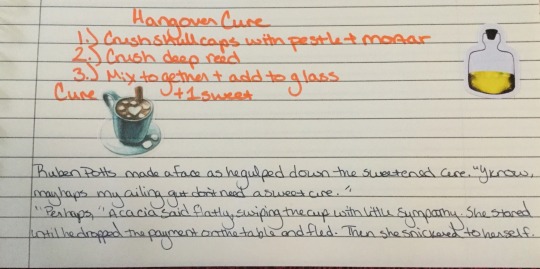 Hangover Cure
1.) Crush shall caps with pestle + mortar
2.) Crush deep reed
3.) Mix together + add to glass
Cure +1 sweet
Ruben Potts made a face as he gulped down the sweetened cure. "Y'know,
mayhaps my ailing gut don't need a sweet cure."
"Perhaps," Acacia said flatly, swiping the cup with little sympathy. She stared
until he dropped the payment on the table and fled. Then she snickered to herself.